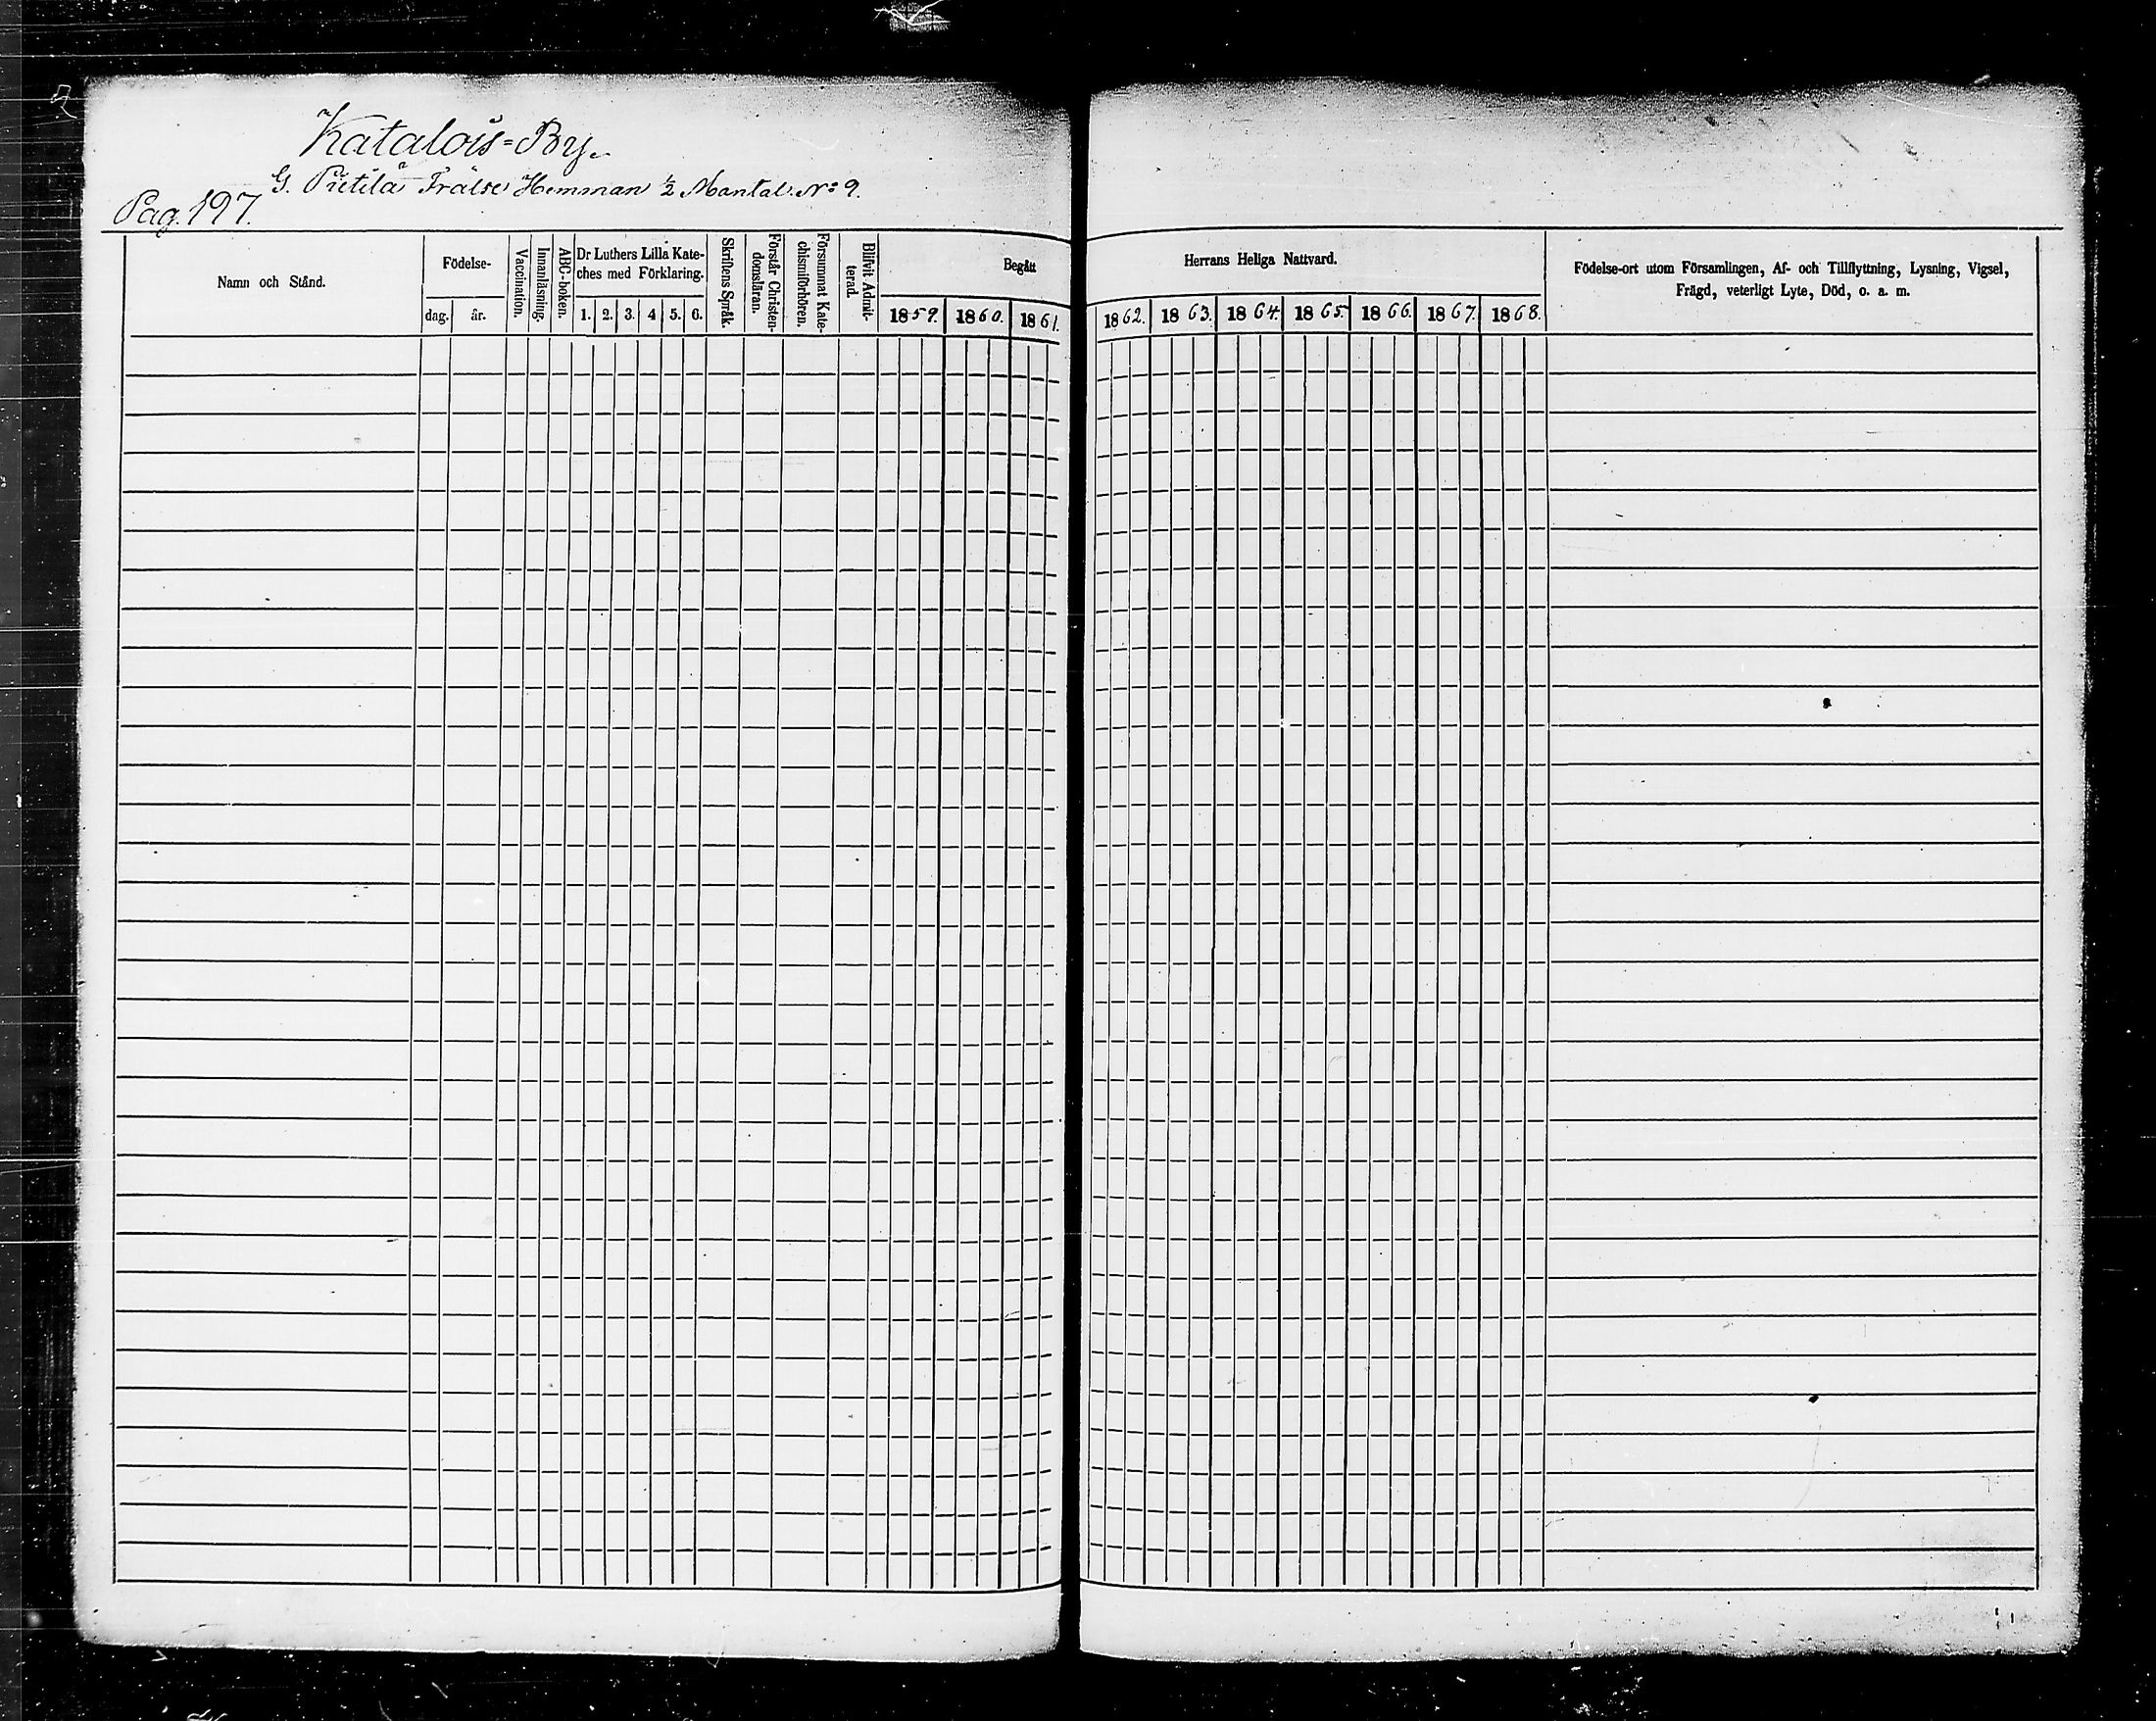 Katalois=By.
G. Pietilä Frälse Hemman ½ Mantal. No 9.
Pag. 197.
Namn och Stånd.
Födelse-
dag. år.
Vaccination.
Innanläsning.
ABC-boken.
Dr Luthers Lilla Kate-
ches med Förklaring.
1. 2. 3. 4 5. 6.
Skriftens Språk.
Förstår Christen-
domsläran.
Försummat Kate-
chismiförhören.
Blifvit Admit-
terad.
Begått
1859. 1860. 1861.
Herrans Heliga Nattvard.
1862. 1863. 1864. 1865. 1866. 1867. 1868.
Födelse-ort utom Församlingen, Af- och Tillflyttning, Lysning, Vigsel,
Frägd, veterligt Lyte, Död, o. a. m.